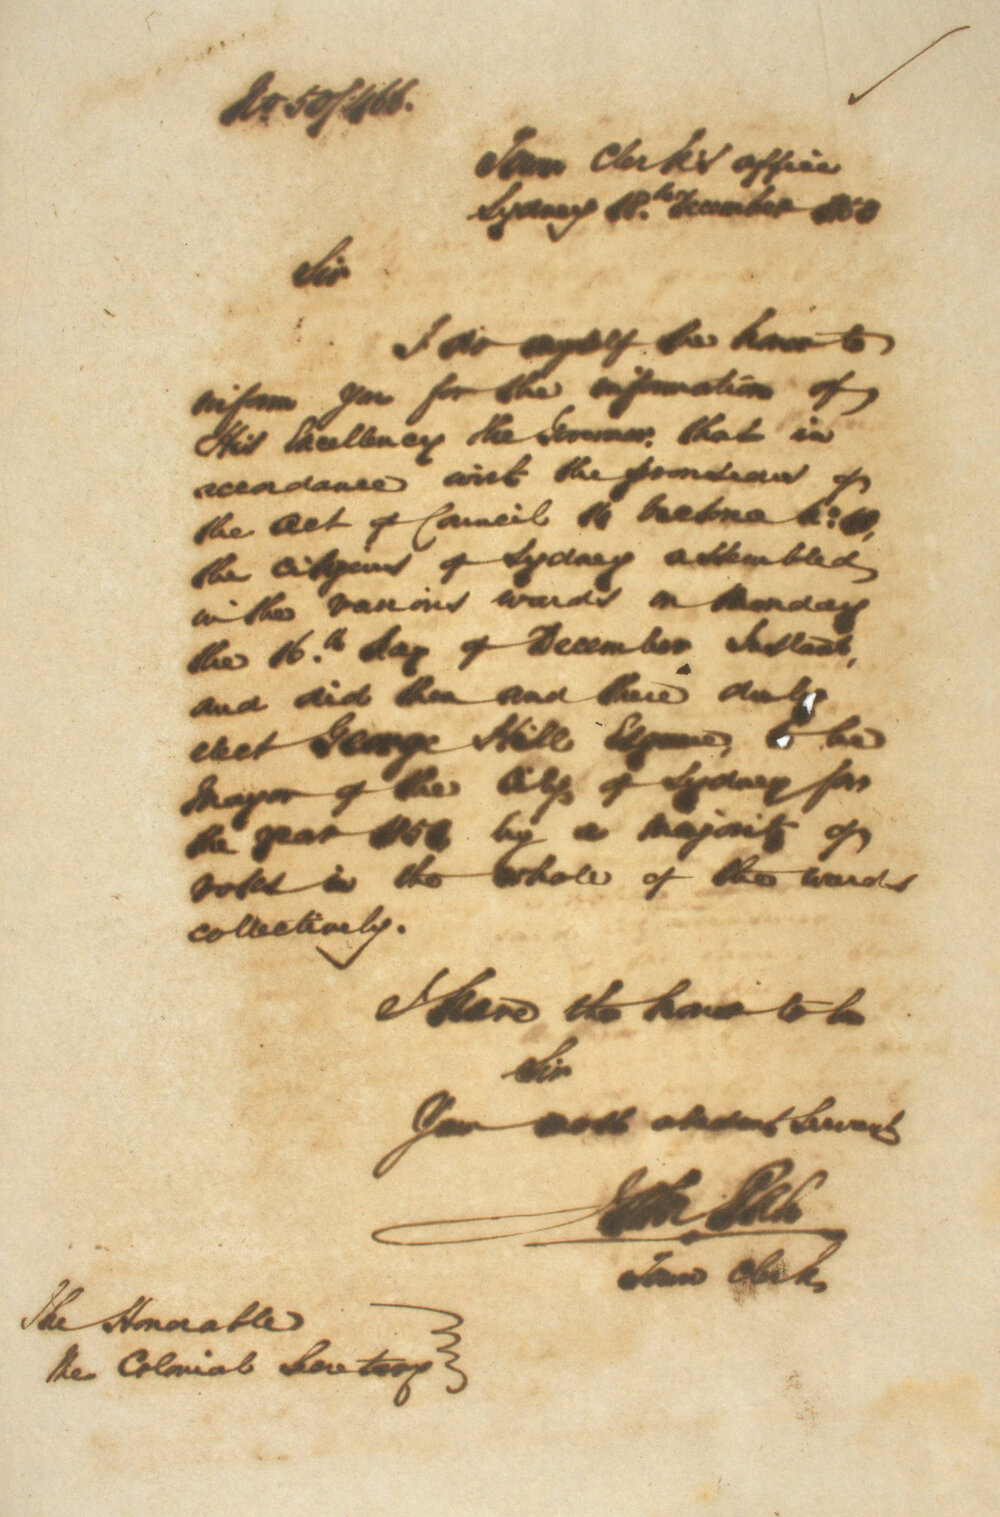 No. 50/466.
Town Clerk's Office
Sydney 18.th December 1850
Sir
I do myself the honor to
inform you for the information of
His Excellency the Governor, that in
accordance with the provisions of
the Act of Council 14 Victoria No.
the Citizens of Sydney assembled
in the various wards on Monday
the 16.th day of December Instant,
and did then and there duly
elect George Hill Esquire, to be
Mayor of the City of Sydney for
the year 1851 by a majority of
votes in the whole of the wards
collectively.
I have the honor to be
Sir
Your most obedient Servant
John
Town Clerk
The Honorable
the Colonial Secretary